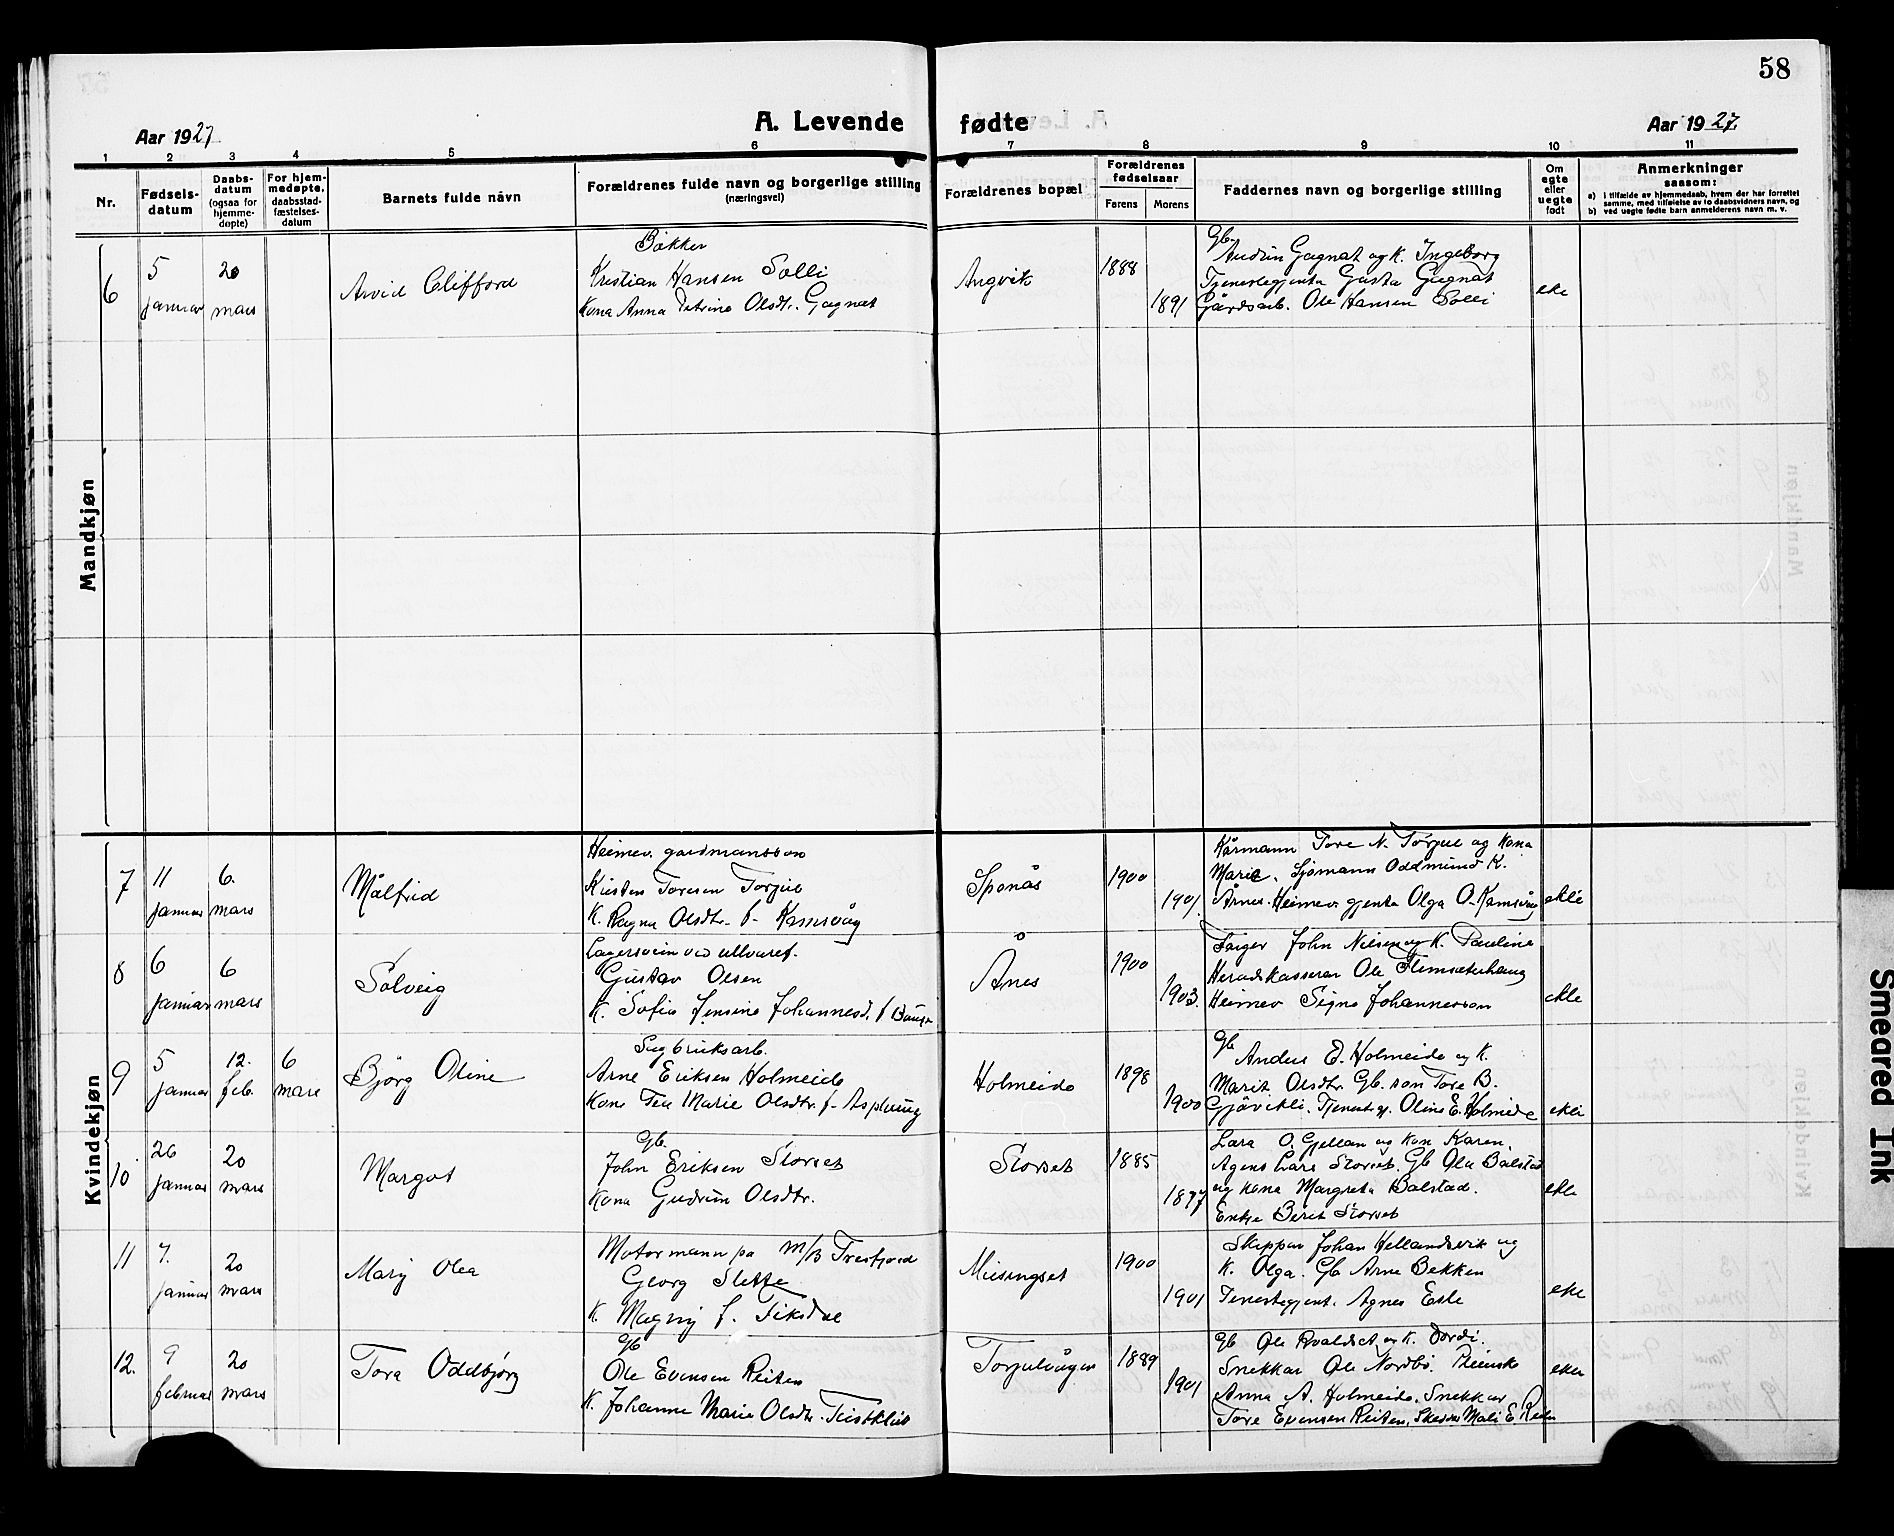 58
Aar 1927
A. Levende fødte
Aar 1927.
1 2 3 4 5 6 7 8 9 10 11
Nr.
Fødsels-
datum
Daabs-
datum
(ogsaa for
hjemme-
døpte)
For hjem-
medøpte,
daabsstad-
fæstelses-
datum
Barnets fulde navn
Forældrenes fulde navn og borgerlige stilling
(næringsvei)
Forældrenes bopæl
Forældrenes
fødselsaar
Farens
Morens
Faddernes navn og borgerlige stilling
Om
egte
eller
uegte
født
Anmerkninger
saasom:
a) i tilfælde av hjemmedaab, hvem der har forrettet
samme, med tilføielse av to daabsvidners navn, og
b) ved uegte fødte barn anmelderens navn m. v.
Mandkjøn
6
5
januar
20
mars
Arvid Clifford
Bakker
Kristian Hansen Solli
Kona Anna Petrine Olsdtr. Gagnat
Angvik
1888
1891
Gb.
Audun Gagnat og K. Ingeborg
Tjenestegjenta Gusta Gagnat
Gårdsarb. Ole Hansen Solli
ekte
Kvindekjøn
7
11
januar
6.
mars
Målfrid
Heimev. gardmannsson
Kristen Toresen Torjul
K. Ragna Olsdtr. f. Kamsvåg
Sponås
1900
1901.
Kårmann Tore N. Torjul og kona
Marie. Sjømann Oddmund K.
Årnes. Heimev. gjenta Olga O. Kamsvåg
ekte
8
6
januar
6
mars
Solveig
Lagersvein ved ullvaref.
Gustav Olsen
K. Sofie Jensine Johannesd. f
Årnes
1900
1903.
John Nilsen og K. Pauline
Heradskasserar Ole Flemsæterhaug
Heimev Signe Johannessen
ekte
9
5
januar
12.
feb.
6
mars
Bjørg Oline
Sagbruksarb.
Arne Eriksen Holmeide
Kona Tea Marie Olsdtr. f. Asphaug
Holmeide
1898
1900
Gb
Anders E. Holmeide og K.
Marit Olsdtr. Gb. son Tore B.
Gjøvikli. Tjenestgj. Oline E. Holmeide
ekte
10
26
januar
20
mars
Margot
Gb.
John Eriksen Storset
Kona Gudrun Olsdtr.
Storset
1885
1897
Lars O. Gjellan og kon Karen.
Agens Lars Storset. Gb Ola Bolstad
og kona Margreta Bolstad.
Enkje Berit Storset
ekte
11
7.
januar
20
mars
Mary Olea
Motormann pa M/B Tresfjord
Georg Slette
K. Magny f. Fiksdal
Meisingset
1900
1901
Skipper Johan Hellandsvik og
K. Olga. Gb Arne Bekken
Tenestegjent. Agnes Eske
ekte
12.
9
februar
20
mars
Tora Oddbjørg
Gb
Ole Evensen Reiten
K. Johanne Marie Olsdtr.
Torjulvågen
1889
1901
Gb Ole Roaldset og K. Dordi.
Snekkar Ole Nordbø.
Anna A. Holmeide. Snekkar
Tore Evensen Reiten, Mali E. Reiten
ekte
Smeared Ink